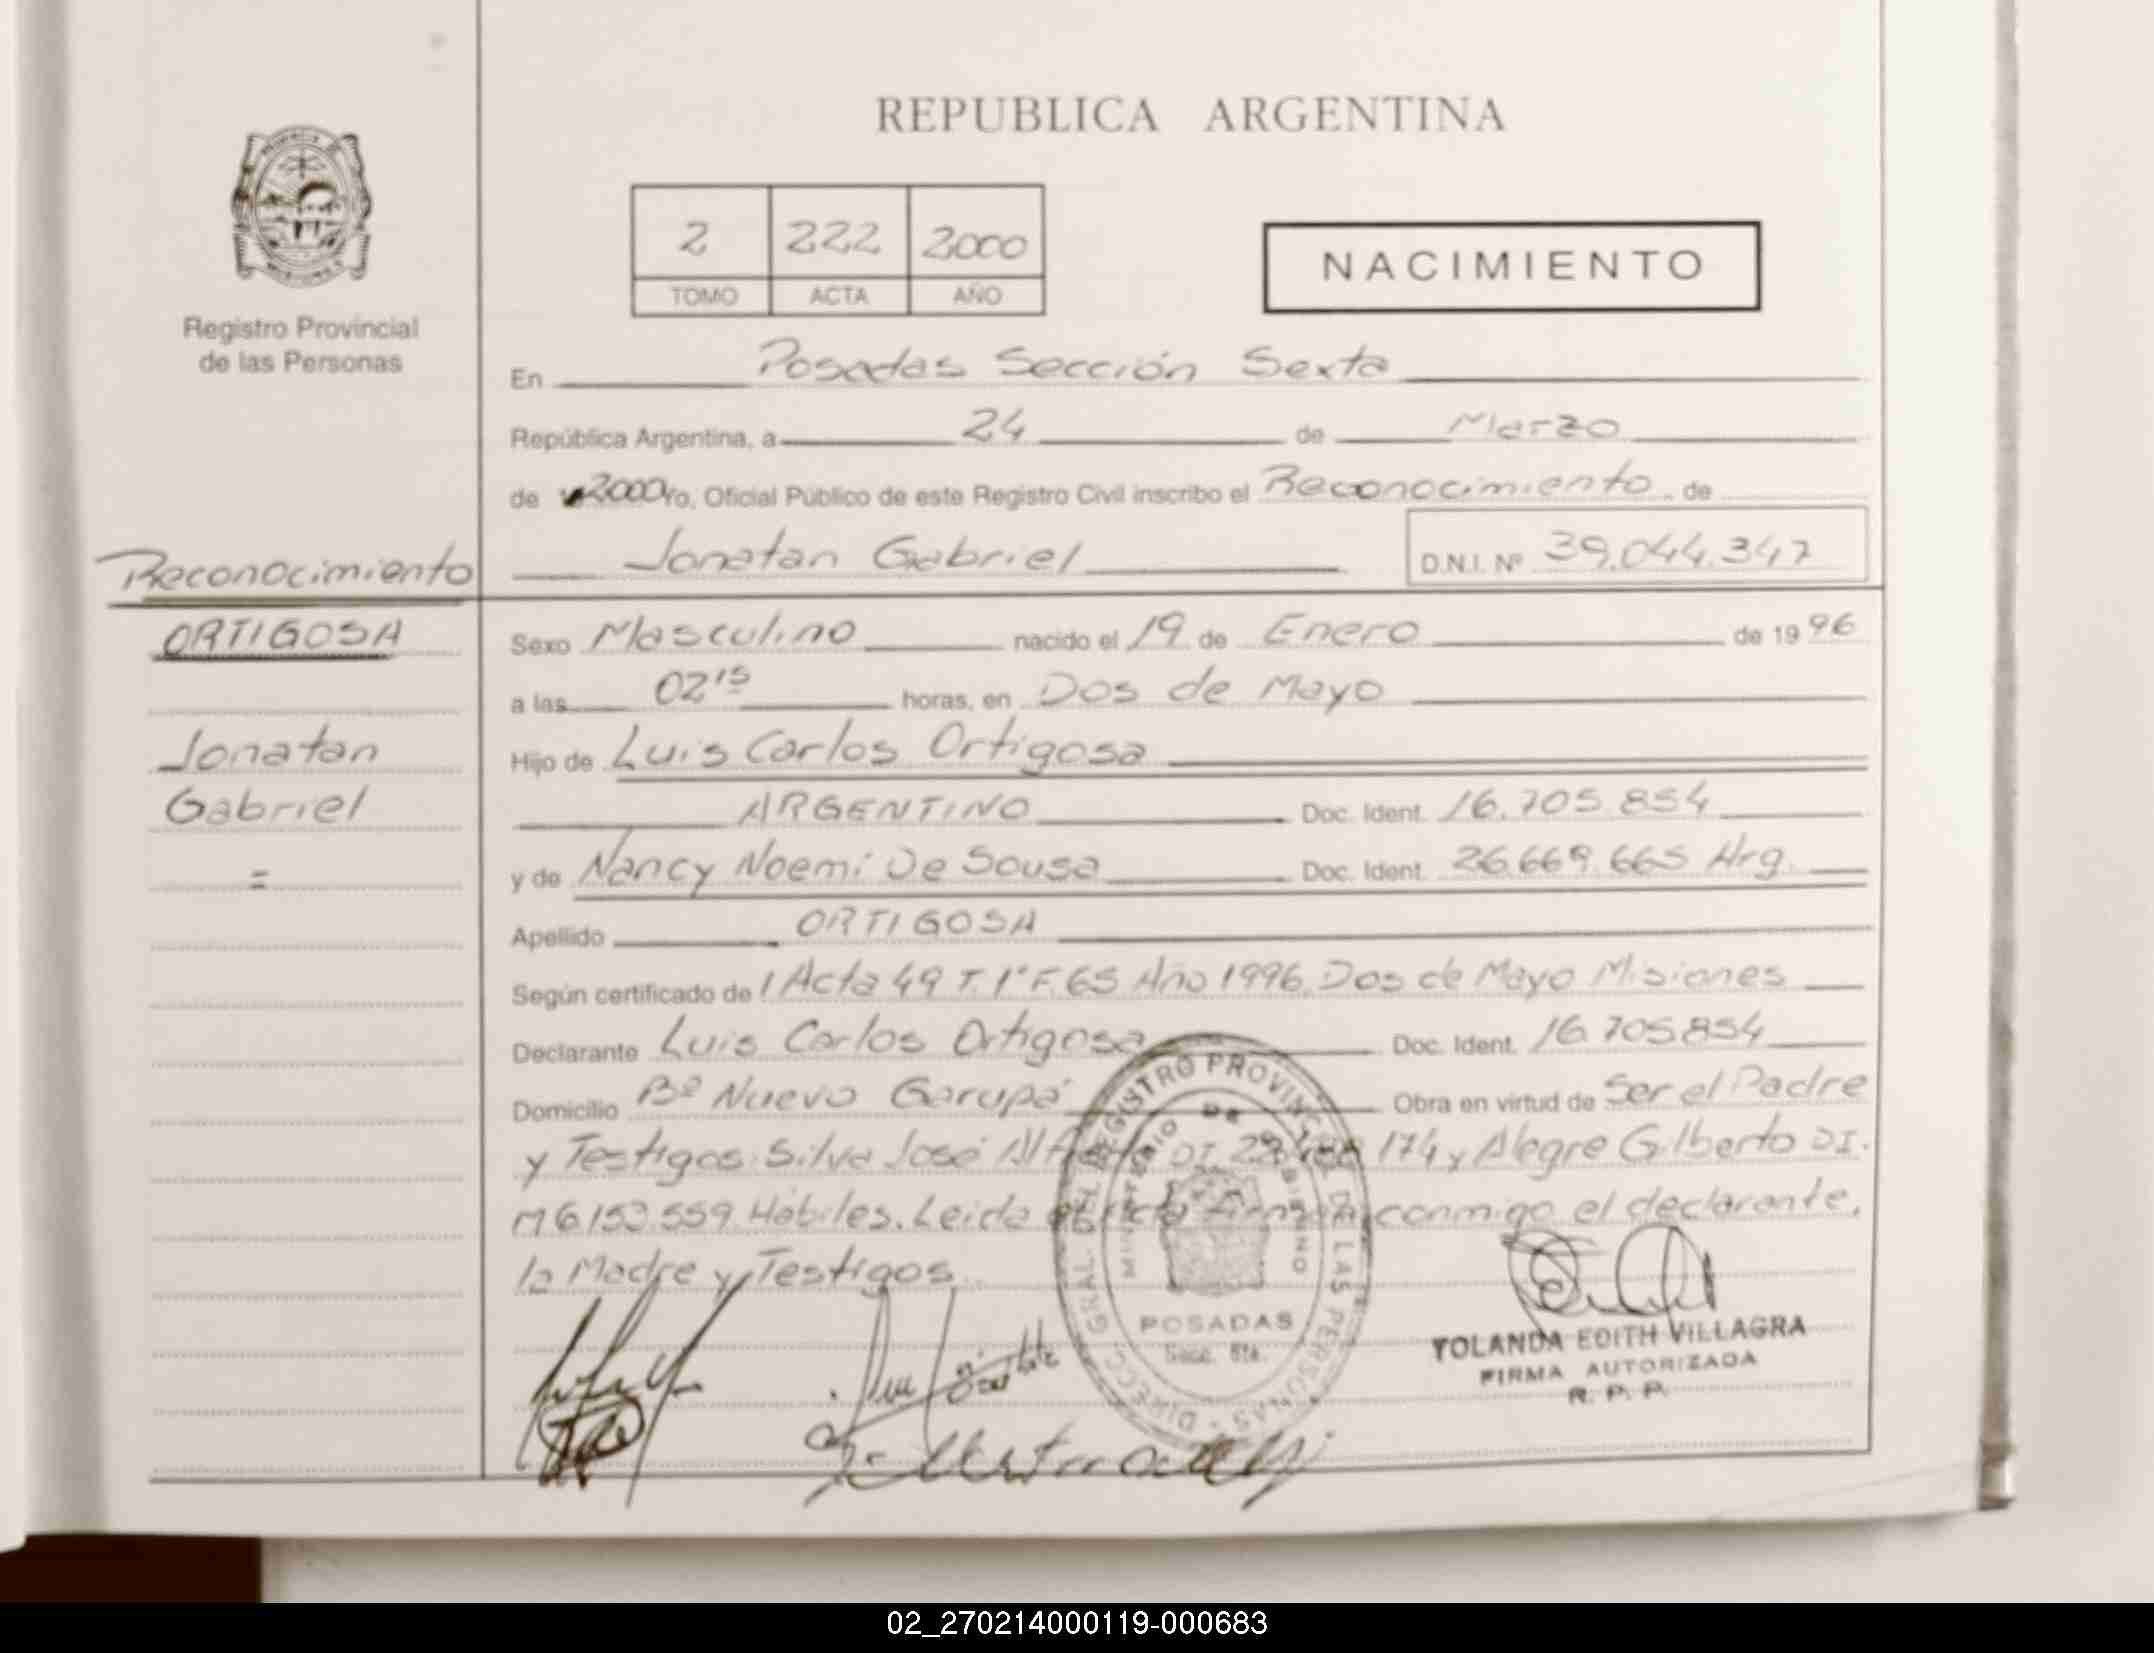 REPUBLICA ARGENTINA
2 222 2000
TOMO ACTA AÑO
NACIMIENTO
Registro Provincial
de las Personas
En Posadas Sección Sexta
República Argentina, a 24 de Marzo
de 2000 Yo, Oficial Público de este Registro Civil inscribo el Reconocimiento de
Jonatan Gabriel D.N.I. Nº 39.044.347
Reconocimiento
ORTIGOSA
Jonatan
Gabriel
=
Sexo Masculino nacido el 19 de Enero de 1996
a las 02 15 horas, en Dos de Mayo
Hijo de Luis Carlos Ortigosa
ARGENTINO Doc. Ident. 16.705.854
y de Nancy Noemi De Sousa Doc. Ident. 26.669.665 Arg.
Apellido ORTIGOSA
Según certificado de / Acta 49 T. 1º F. 65 Año 1996 Dos de Mayo Misiones
Declarante Luis Carlos Ortigosa Doc. Ident. 16.705854
Domicilio Bº Nuevo Garupá Obra en virtud de Ser el Padre
y Testigos: Silva José DI 174 y Alegre Gilberto DI.
M 6.153.559 Hábiles. Leida el acta firman conmigo el declarante,
la Madre y Testigos.
DIRECC. GRAL. DEL REGISTRO PROVINC. DE LAS PERSONAS
MINISTERIO DE GOBIERNO
POSADAS
Secc. 6ta.
YOLANDA EDITH VILLAGRA
FIRMA AUTORIZADA
R. P. P.
02_270214000119-000683